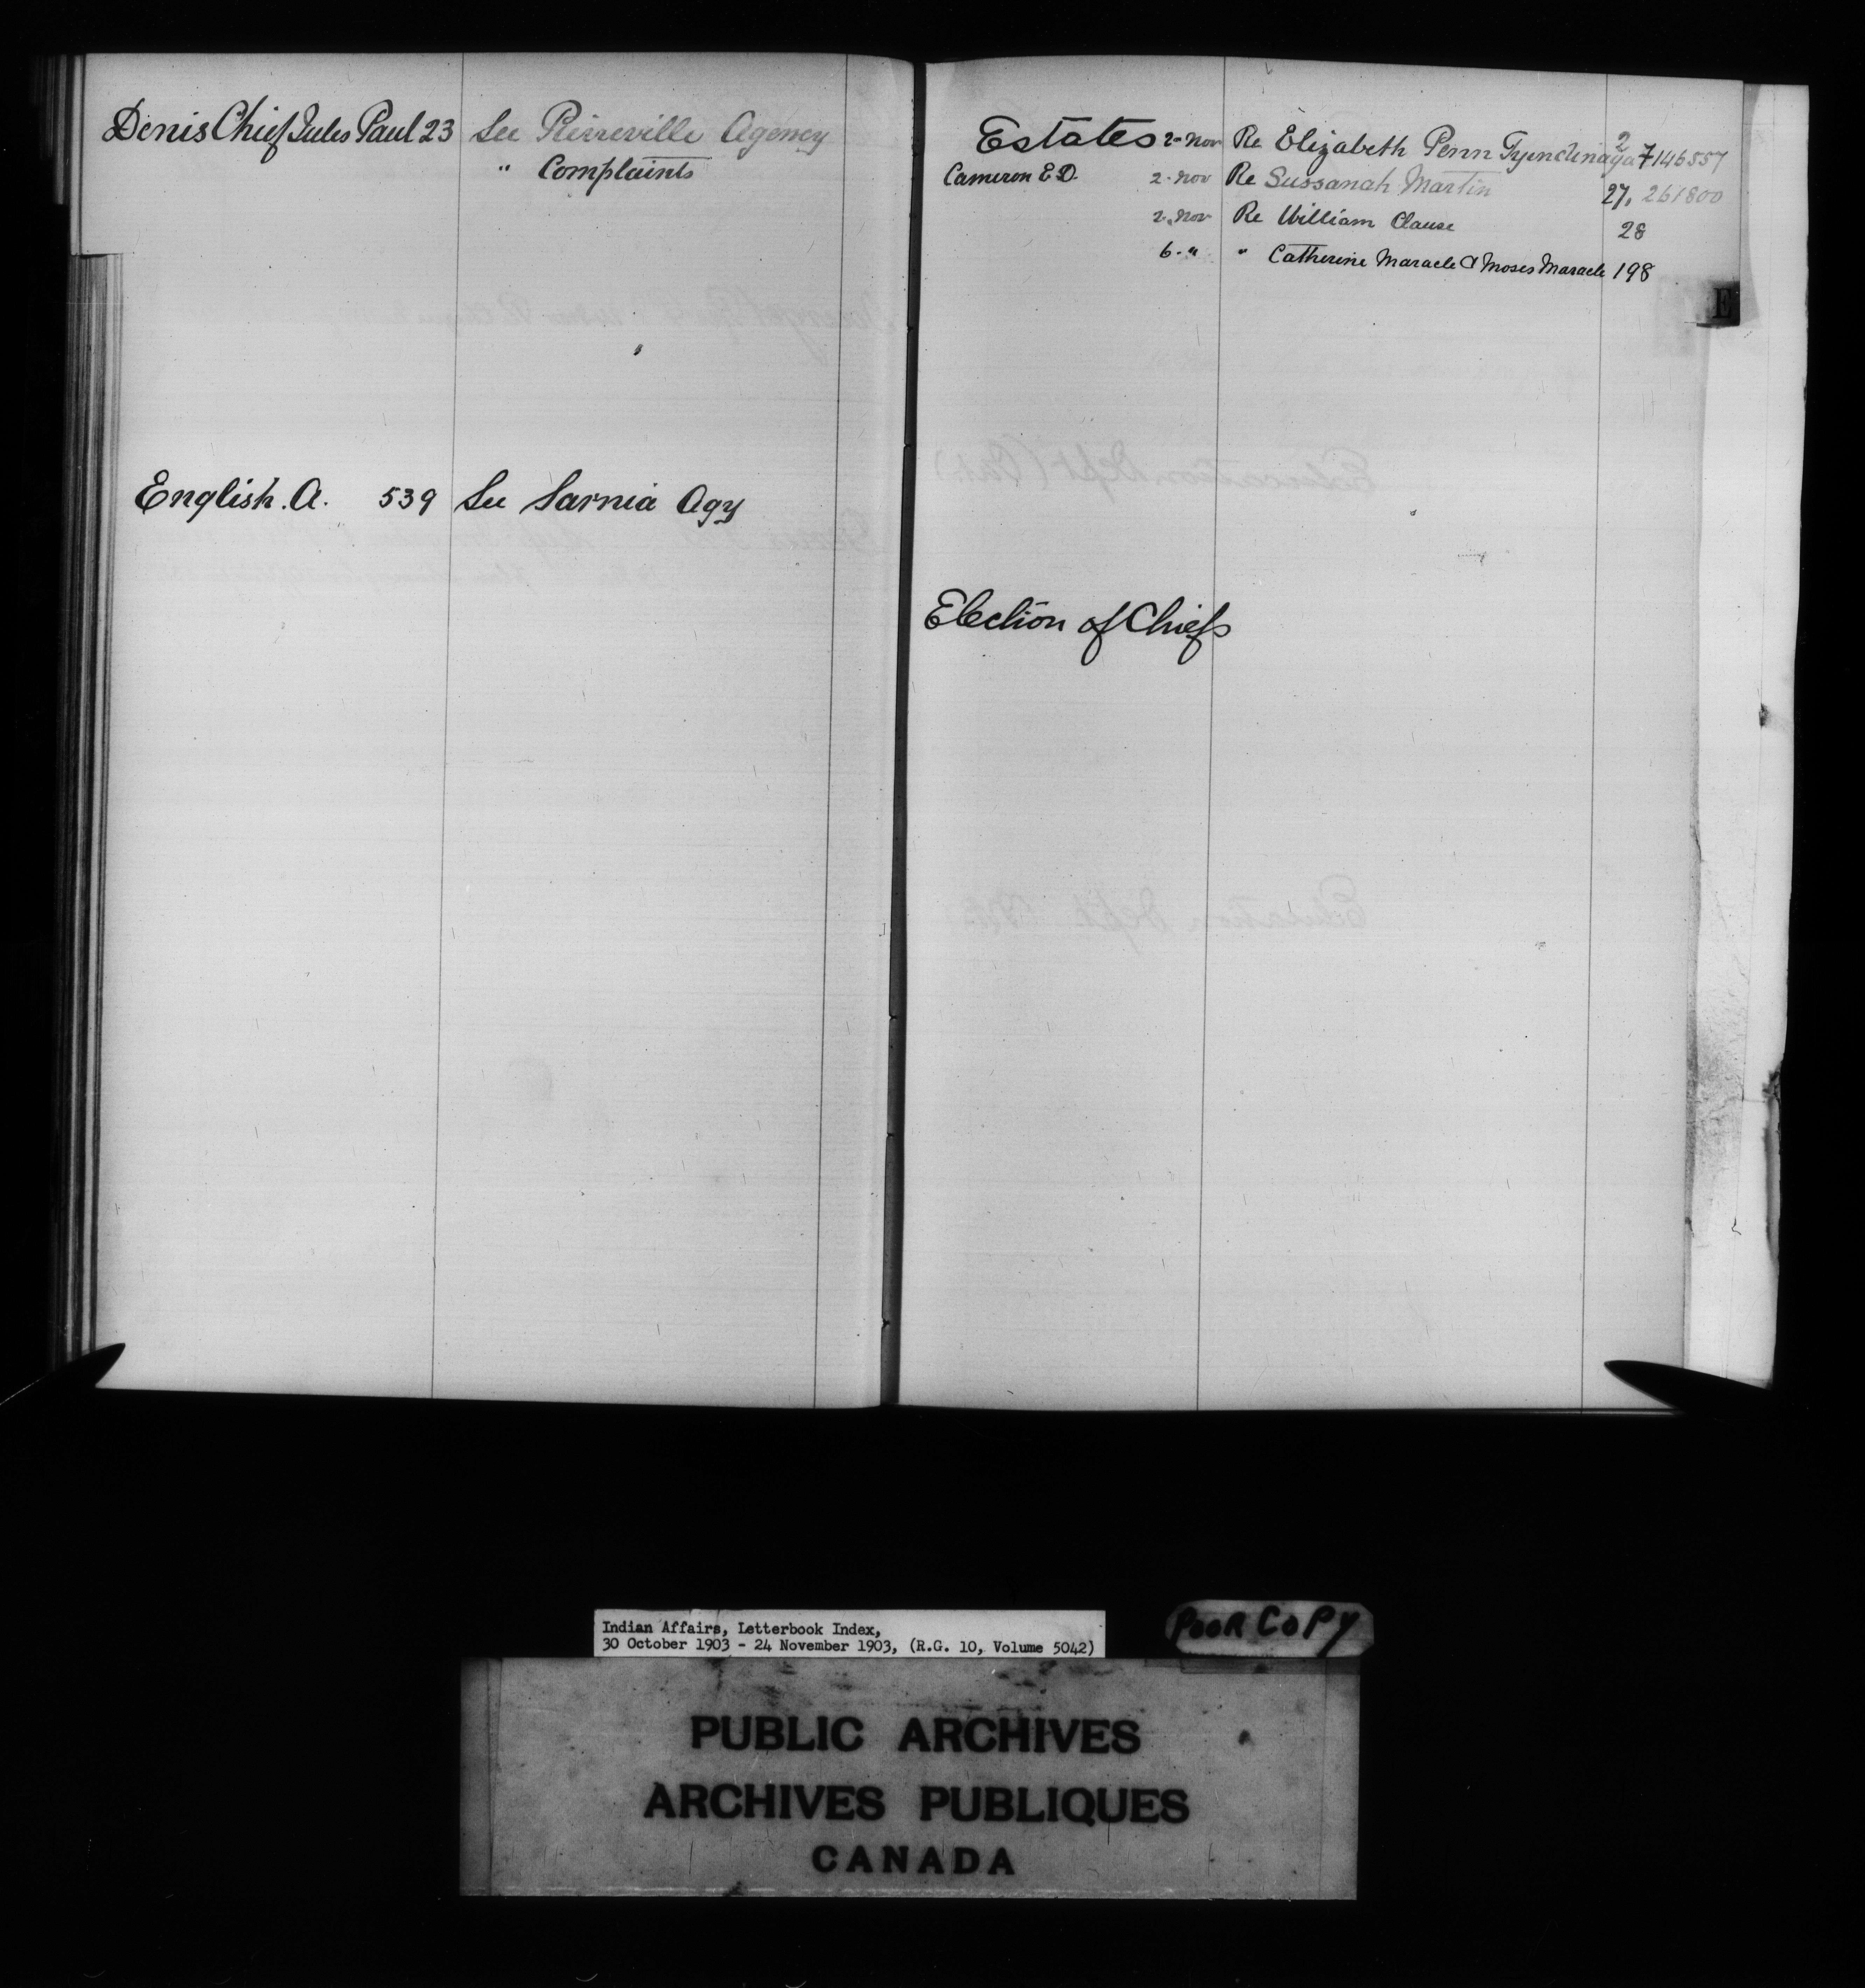 Denis Chief Jules Paul 23 See Pierreville Agency
" Complaints
English. A. 539 See Sarnia Agy
Estates 2- Nov Re Elizabeth Penn Tyendinaga 2 7 146557
Cameron E D. 2- Nov Re Sussanah Martin 27, 261800
2. Nov Re William Clause 28
6- " " Catherine Maracle & Moses Maracle 198
E
Election of Chiefs
Indian Affairs, Letterbook Index,
30 October 1903 - 24 November 1903, (R.G. 10, Volume 5042)
POOR COPY
PUBLIC ARCHIVES
ARCHIVES PUBLIQUES
CANADA